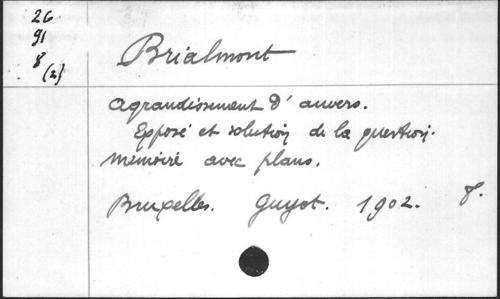 26
91
8
(2)
Brialmont
agrandissement d'anvers.
Exposé et solution de la question.
memoire avec plans.
Bruxelles. Guyot. 1902. 8.